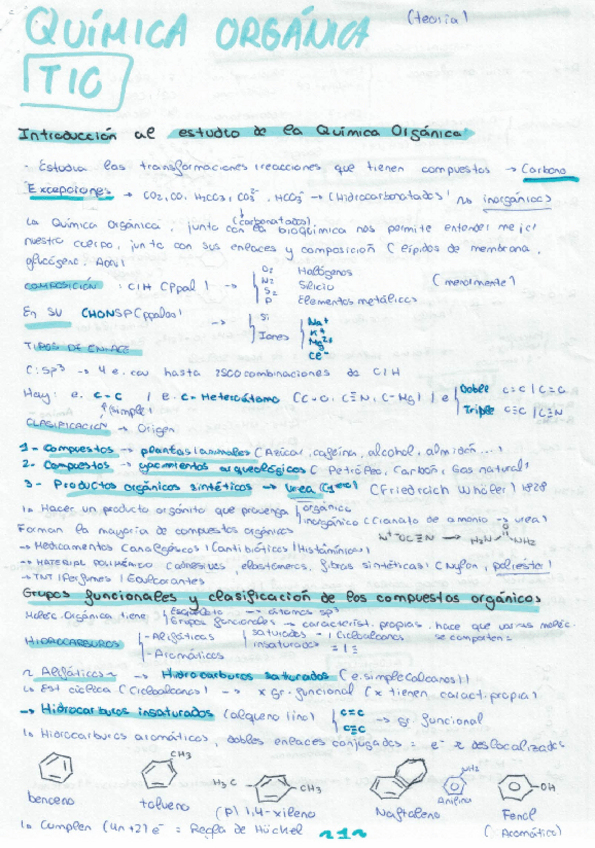 QUÍMICA ORGÁNICA (teoría)
T10
Introducción al estudio de la Química Orgánica
- Estudia las transformaciones/reacciones que tienen compuestos → Carbono
Excepciones → CO2, CO, H2CO3, CO3²⁻, HCO3⁻ → (Hidrocarbonatados) No inorgánicos
(carbonatados)
La Química Orgánica, junto con la bioquímica nos permite entender mejor
nuestro cuerpo, junto con sus enlaces y composición (lípidos de membrana,
glucógeno, ADN)
COMPOSICIÓN : C/H (Ppal) → O2 Halógenos
N2 Silicio (menormente)
S2 Elementos metálicos
P
En SU CHONSP (Ppalos) → Si
Iones Na⁺
K⁺
Mg²⁺
Ce⁻
TIPOS DE ENLACE
C: sp³ → 4 e. cov hasta 2500 combinaciones de C/H
Hay: e. C-C / e. C-Heteroátomo (C-O, C≡N, C-Mg) / e Doble C=C / C=O
(simple) Triple C≡C / C≡N
CLASIFICACIÓN → Origen
1- Compuestos → plantas/animales (Azúcar, cafeína, alcohol, almidón...)
2- Compuestos → yacimientos arqueológicos (Petróleo, Carbón, Gas natural)
3- Productos orgánicos sintéticos → Urea (Friedrich Whöler) 1828
↳ Hacer un producto orgánico que provenga orgánico
inorgánico (cianato de amonio → urea)
Forman la mayoría de compuestos orgánicos
→ Medicamentos (analgésicos/(antibióticos/Histamínicos)
→ MATERIAL POLIMÉRICO (adhesivos, elastómeros, fibras sintéticas) (Nylon, poliéster)
→ TNT/Perfumes/Edulcorantes
Grupos funcionales y clasificación de los compuestos orgánicos
Moléc. Orgánica tiene Esqueleto → átomos sp³
Grupos funcionales → característ. propias, hace que varias moléc.
se comporten =
HIDROCARBUROS - Alifáticos saturados - / Cicloalcanos
insaturados = / ≡
- Aromáticos
~ Alifáticos ~ → Hidrocarburos saturados (e. simple (alcanos))
↳ Est cíclica (Cicloalcanos) → x Gr. funcional (x tienen caract. propia)
→ Hidrocarburos insaturados (alqueno/ino) C=C
C≡C → gr. funcional
↳ Hidrocarburos aromáticos, dobles enlaces conjugados = e⁻ π deslocalizados
CH3
H3C CH3
NH2
OH
benceno
tolueno
(p) 1,4-xileno
Naftaleno
Anilina
Fenol
(Aromático)
↳ Cumplen (4n+2) e⁻ = Regla de Hückel
~1~